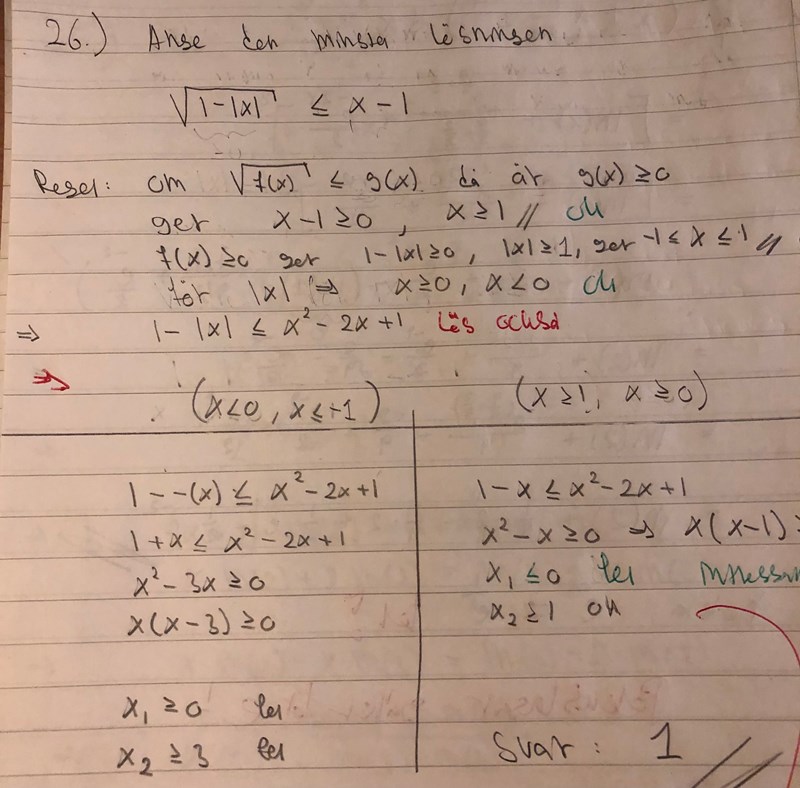 26.) Ange den minsta lösningen.
√1-|x| ≤ x-1
Regel: om √f(x) ≤ g(x) då är g(x) ≥ 0
ger x-1 ≥ 0, x ≥ 1 // ok
f(x) ≥ 0 ger 1-|x| ≥ 0, |x| ≥ 1, ger -1 ≤ x ≤ 1 //
för |x| ⇒ x ≥ 0, x < 0 ok
⇒ 1-|x| ≤ x² - 2x + 1 lös också
⇒ (x < 0, x ≤ -1) (x ≥ 1, x ≥ 0)
1--(x) ≤ x² - 2x + 1
1+x ≤ x² - 2x + 1
x² - 3x ≥ 0
x(x-3) ≥ 0
x₁ ≥ 0 ej
x₂ ≥ 3 ej
1-x ≤ x² - 2x + 1
x² - x ≥ 0 ⇒ x(x-1) ≥
x₁ ≤ 0 ej
x₂ ≥ 1 ok
Svar: 1 //